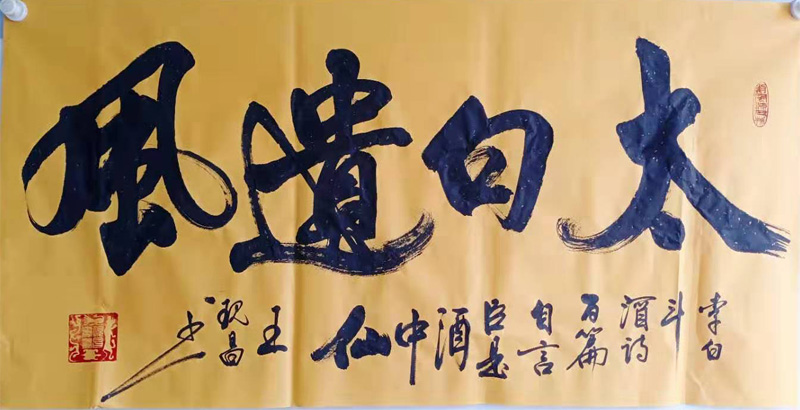 太白遺風
李白
斗
酒诗
百篇
自言
臣是
酒
中
仙
王
昌
书